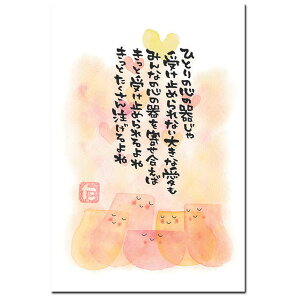 ひとりの心の器じゃ
受け止められない大きな愛も
みんなの心の器を寄せ合えば
きっと受け止められるよね
きっとたくさん注げるよね